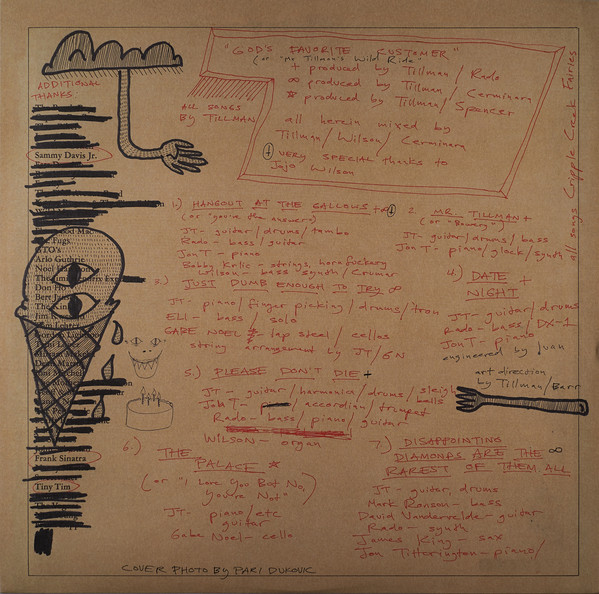 "GOD'S FAVORITE CUSTOMER"
(or "Mr Tillman's Wild Ride"
+ produced by Tillman / Rado
∞ produced by Tillman / Cerminara
* produced by Tillman / Spencer
all herein mixed by
Tillman / Wilson / Cerminara
VERY SPECIAL thanks to
Jojo Wilson
ALL SONGS
BY TILLMAN
all songs Cripple Creek Fairies
ADDITIONAL
THANKS
Sammy Davis Jr.
The Fugs
Arlo Guthrie
Noel
Don
Bert
The Kin
Jim
Frank Sinatra
Tiny Tim
1.) HANGOUT AT THE GALLOWS +
(or "you're the answer")
JT- guitar/drums/tambo
Rado- bass/guitar
Jon T- piano
Bobby Krlic- strings, horn fuckery
Wilson- bass synth/Crumar
2. MR. TILLMAN +
(or "Bowery")
JT- guitar/drums/bass
Jon T- piano/glock/synth
3.) JUST DUMB ENOUGH TO TRY ∞
JT- piano/finger picking/drums/tron
ELI- bass / solo
GABE NOEL lap steel / cellos
string arrangement by JT/GN
4.) DATE +
NIGHT
JT- guitar/drums
Rado- bass/DX-1
Jon T- piano
engineered by Juan
art direction
by Tillman/Barr
5.) PLEASE DON'T DIE +
JT- guitar/harmonica/drums/sleigh
bells
Jon T- accordian/trumpet
Rado- bass/piano/guitar
WILSON- organ
6.) THE
PALACE *
(or "I Love You But No,
You're Not")
JT- piano/etc
guitar
Gabe Noel- cello
7.) DISAPPOINTING
DIAMONDS ARE THE ∞
RAREST OF THEM ALL
JT- guitar, drums
Mark Ronson- bass
David Vandervelde- guitar
Rado- synth
James King- sax
Jon Titterington- piano/
COVER PHOTO BY PARI DUKOVIC